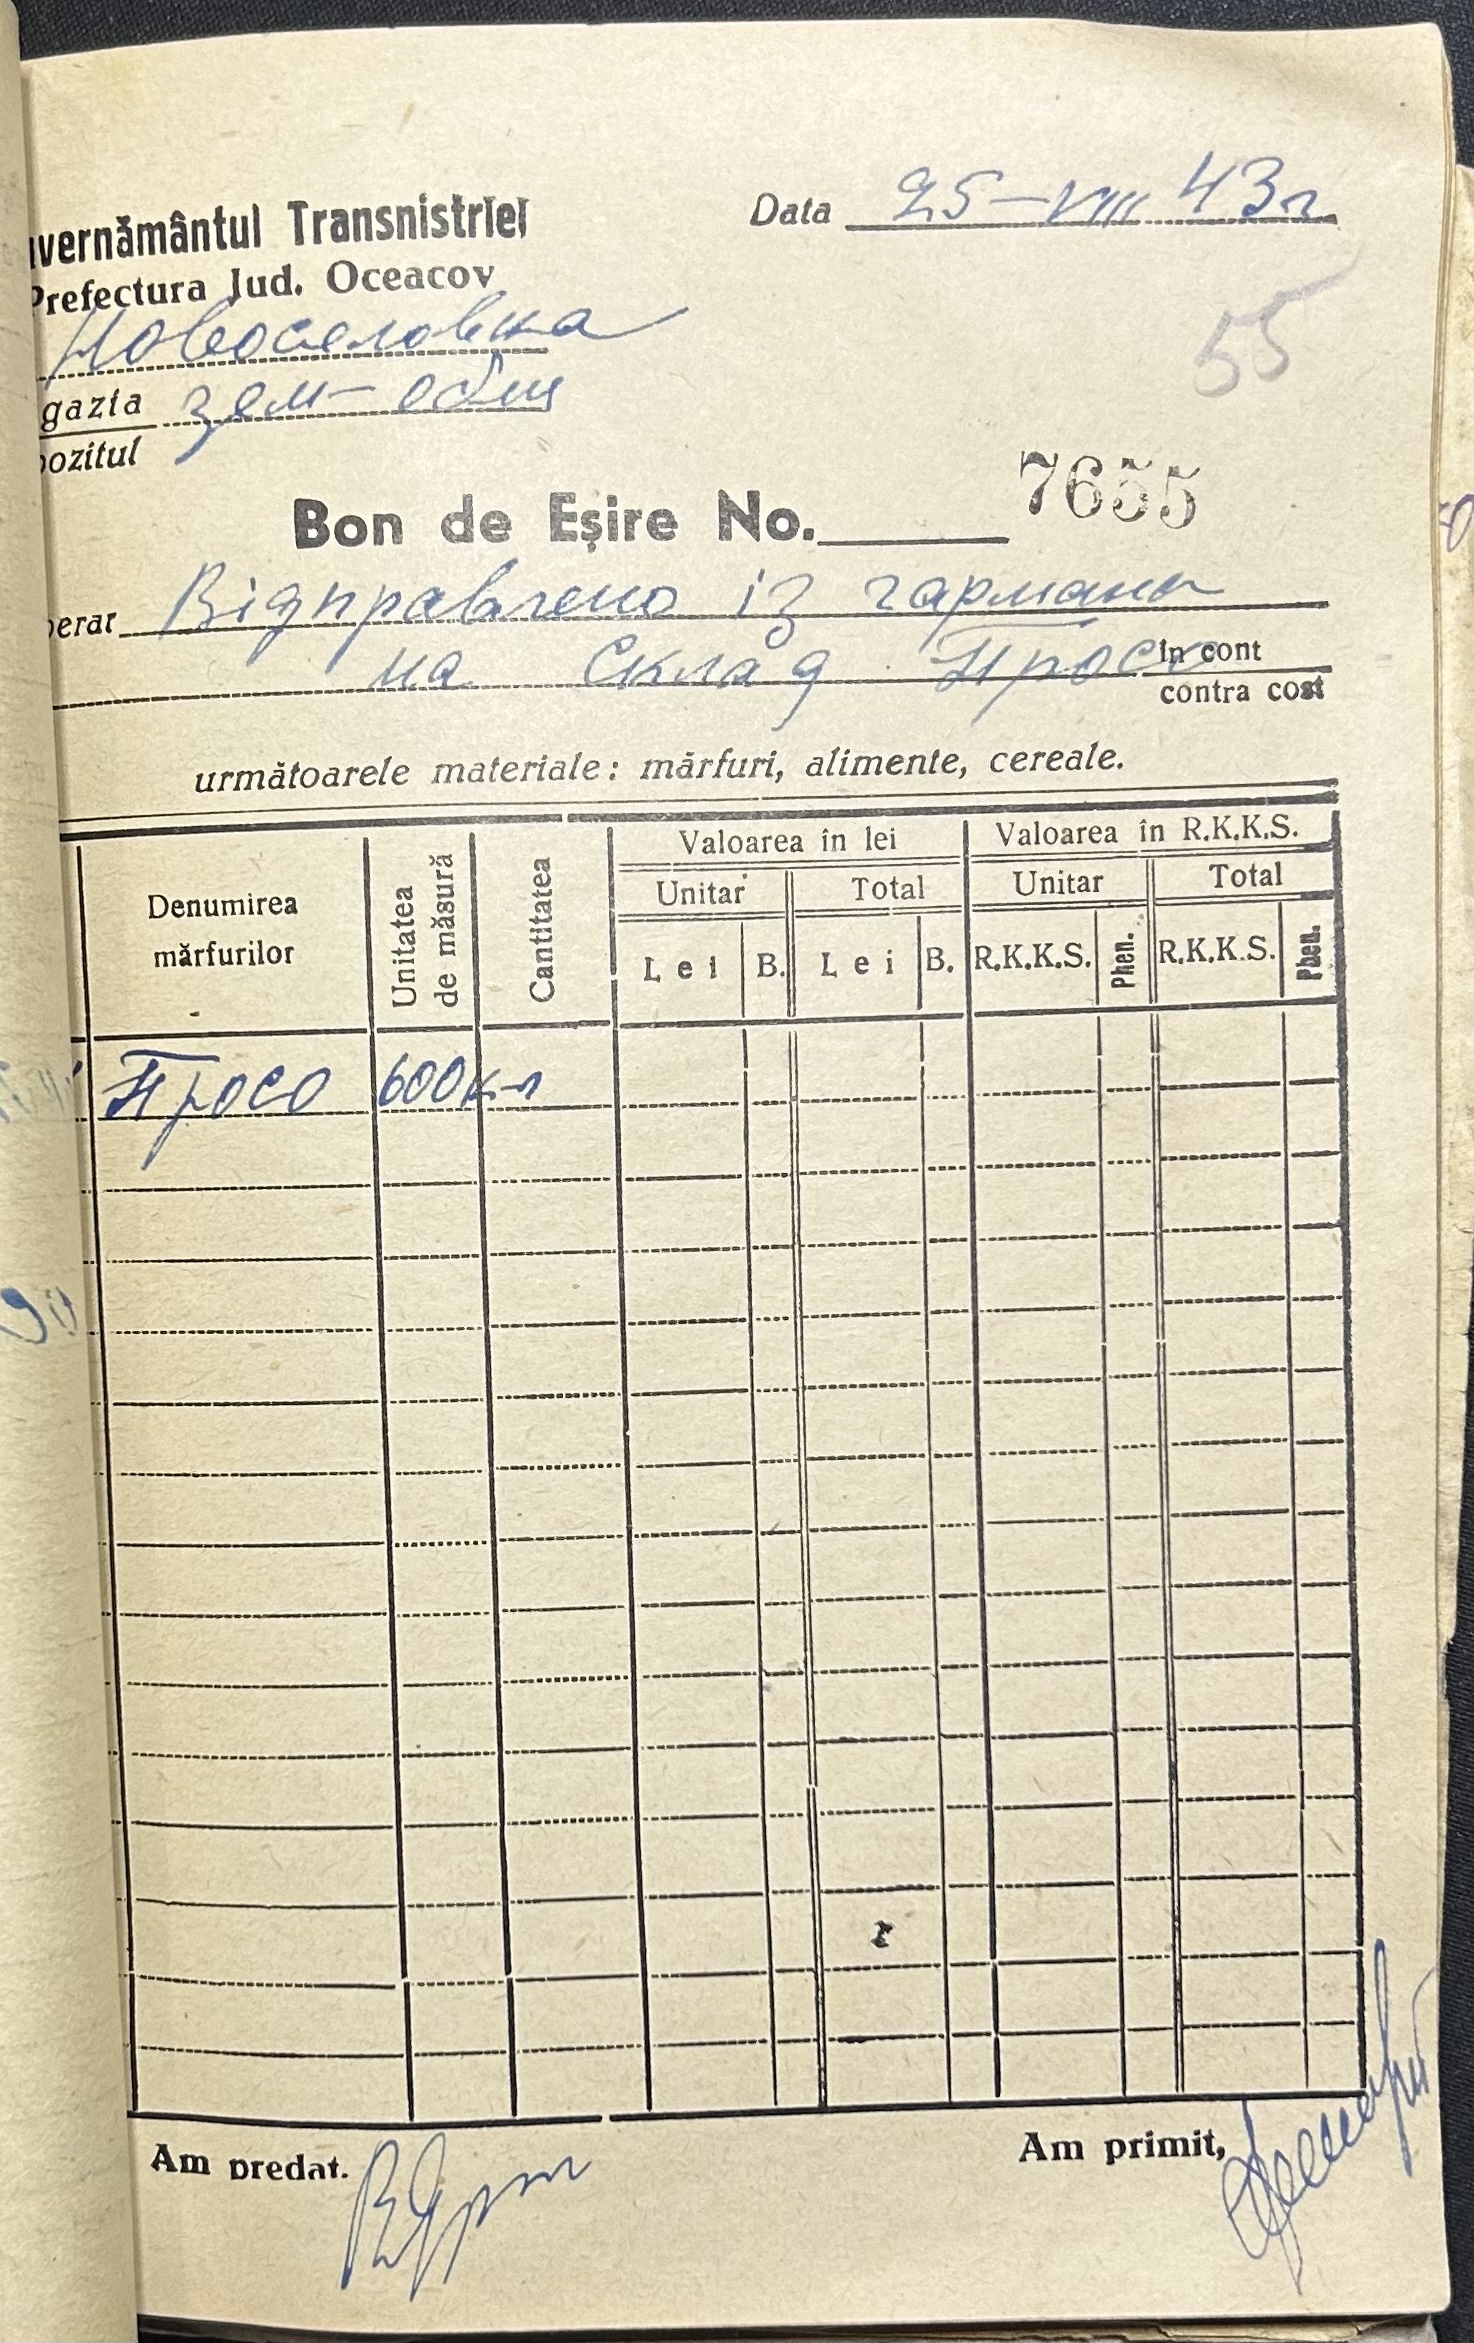 uvernământul Transnistriei
Prefectura Jud. Oceacov
Data 25-VIII 43 г
Новоселовка
55
gazia зем-общ
pozitul
Bon de Eșire No. 7655
berat Відправлено із гармана
на склад Просо
în cont
contra cost
următoarele materiale: mărfuri, alimente, cereale.
Denumirea mărfurilor
Unitatea de măsură
Cantitatea
Valoarea în lei
Valoarea în R.K.K.S.
Unitar Total Unitar Total
Lei B. Lei B. R.K.K.S. Phen. R.K.K.S. Phen.
Просо 600 к-л
Am predat.
Am primit,